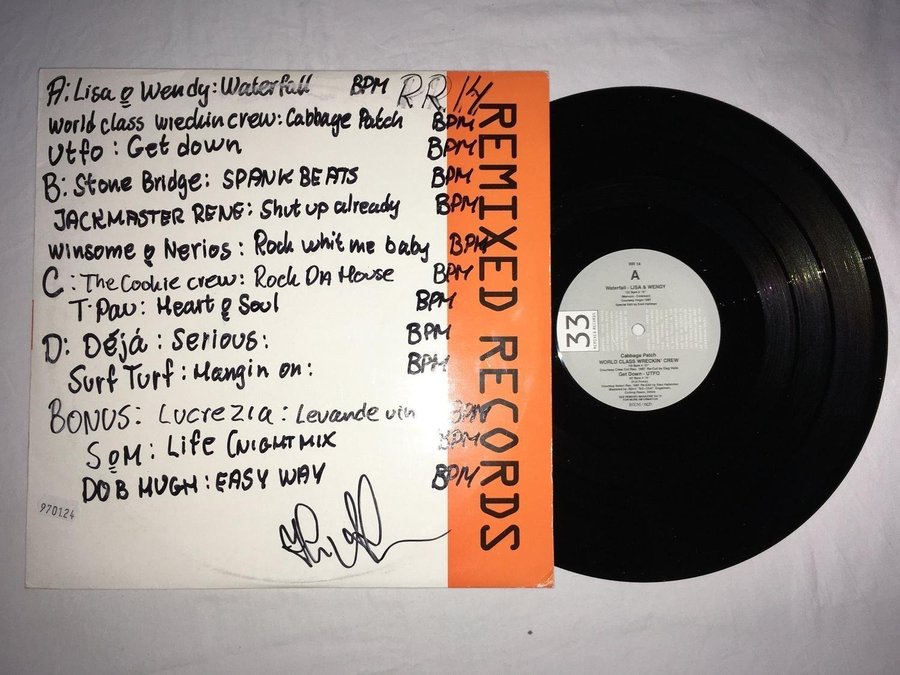 A: Lisa o Wendy: Waterfall BPM RR 14
World class wreckin crew: Cabbage Patch BPM
Utfo: Get down BPM
B: Stone Bridge: SPANK BEATS BPM
JACKMASTER RENE: Shut up already BPM
Winsome o Nerios: Rock whit me baby BPM
C: The Cookie crew: Rock DA House BPM
T. Pau: Heart o Soul BPM
D: Déjá: Serious: BPM
Surf Turf: Mangin on: BPM
BONUS: Lucrezia: Levande vin BPM
SoM: Life (NIGHTMIX BPM
DOB HUGH: EASY WAY BPM
970124
REMIXED RECORDS
RR 14
A
Waterfall - LISA & WENDY
33
REMIXED RECORDS
Cabbage Patch
WORLD CLASS WRECKIN' CREW
Get Down - UTFO
SEE REMIXED MAGAZINE Vol 14
FOR MORE INFORMATION